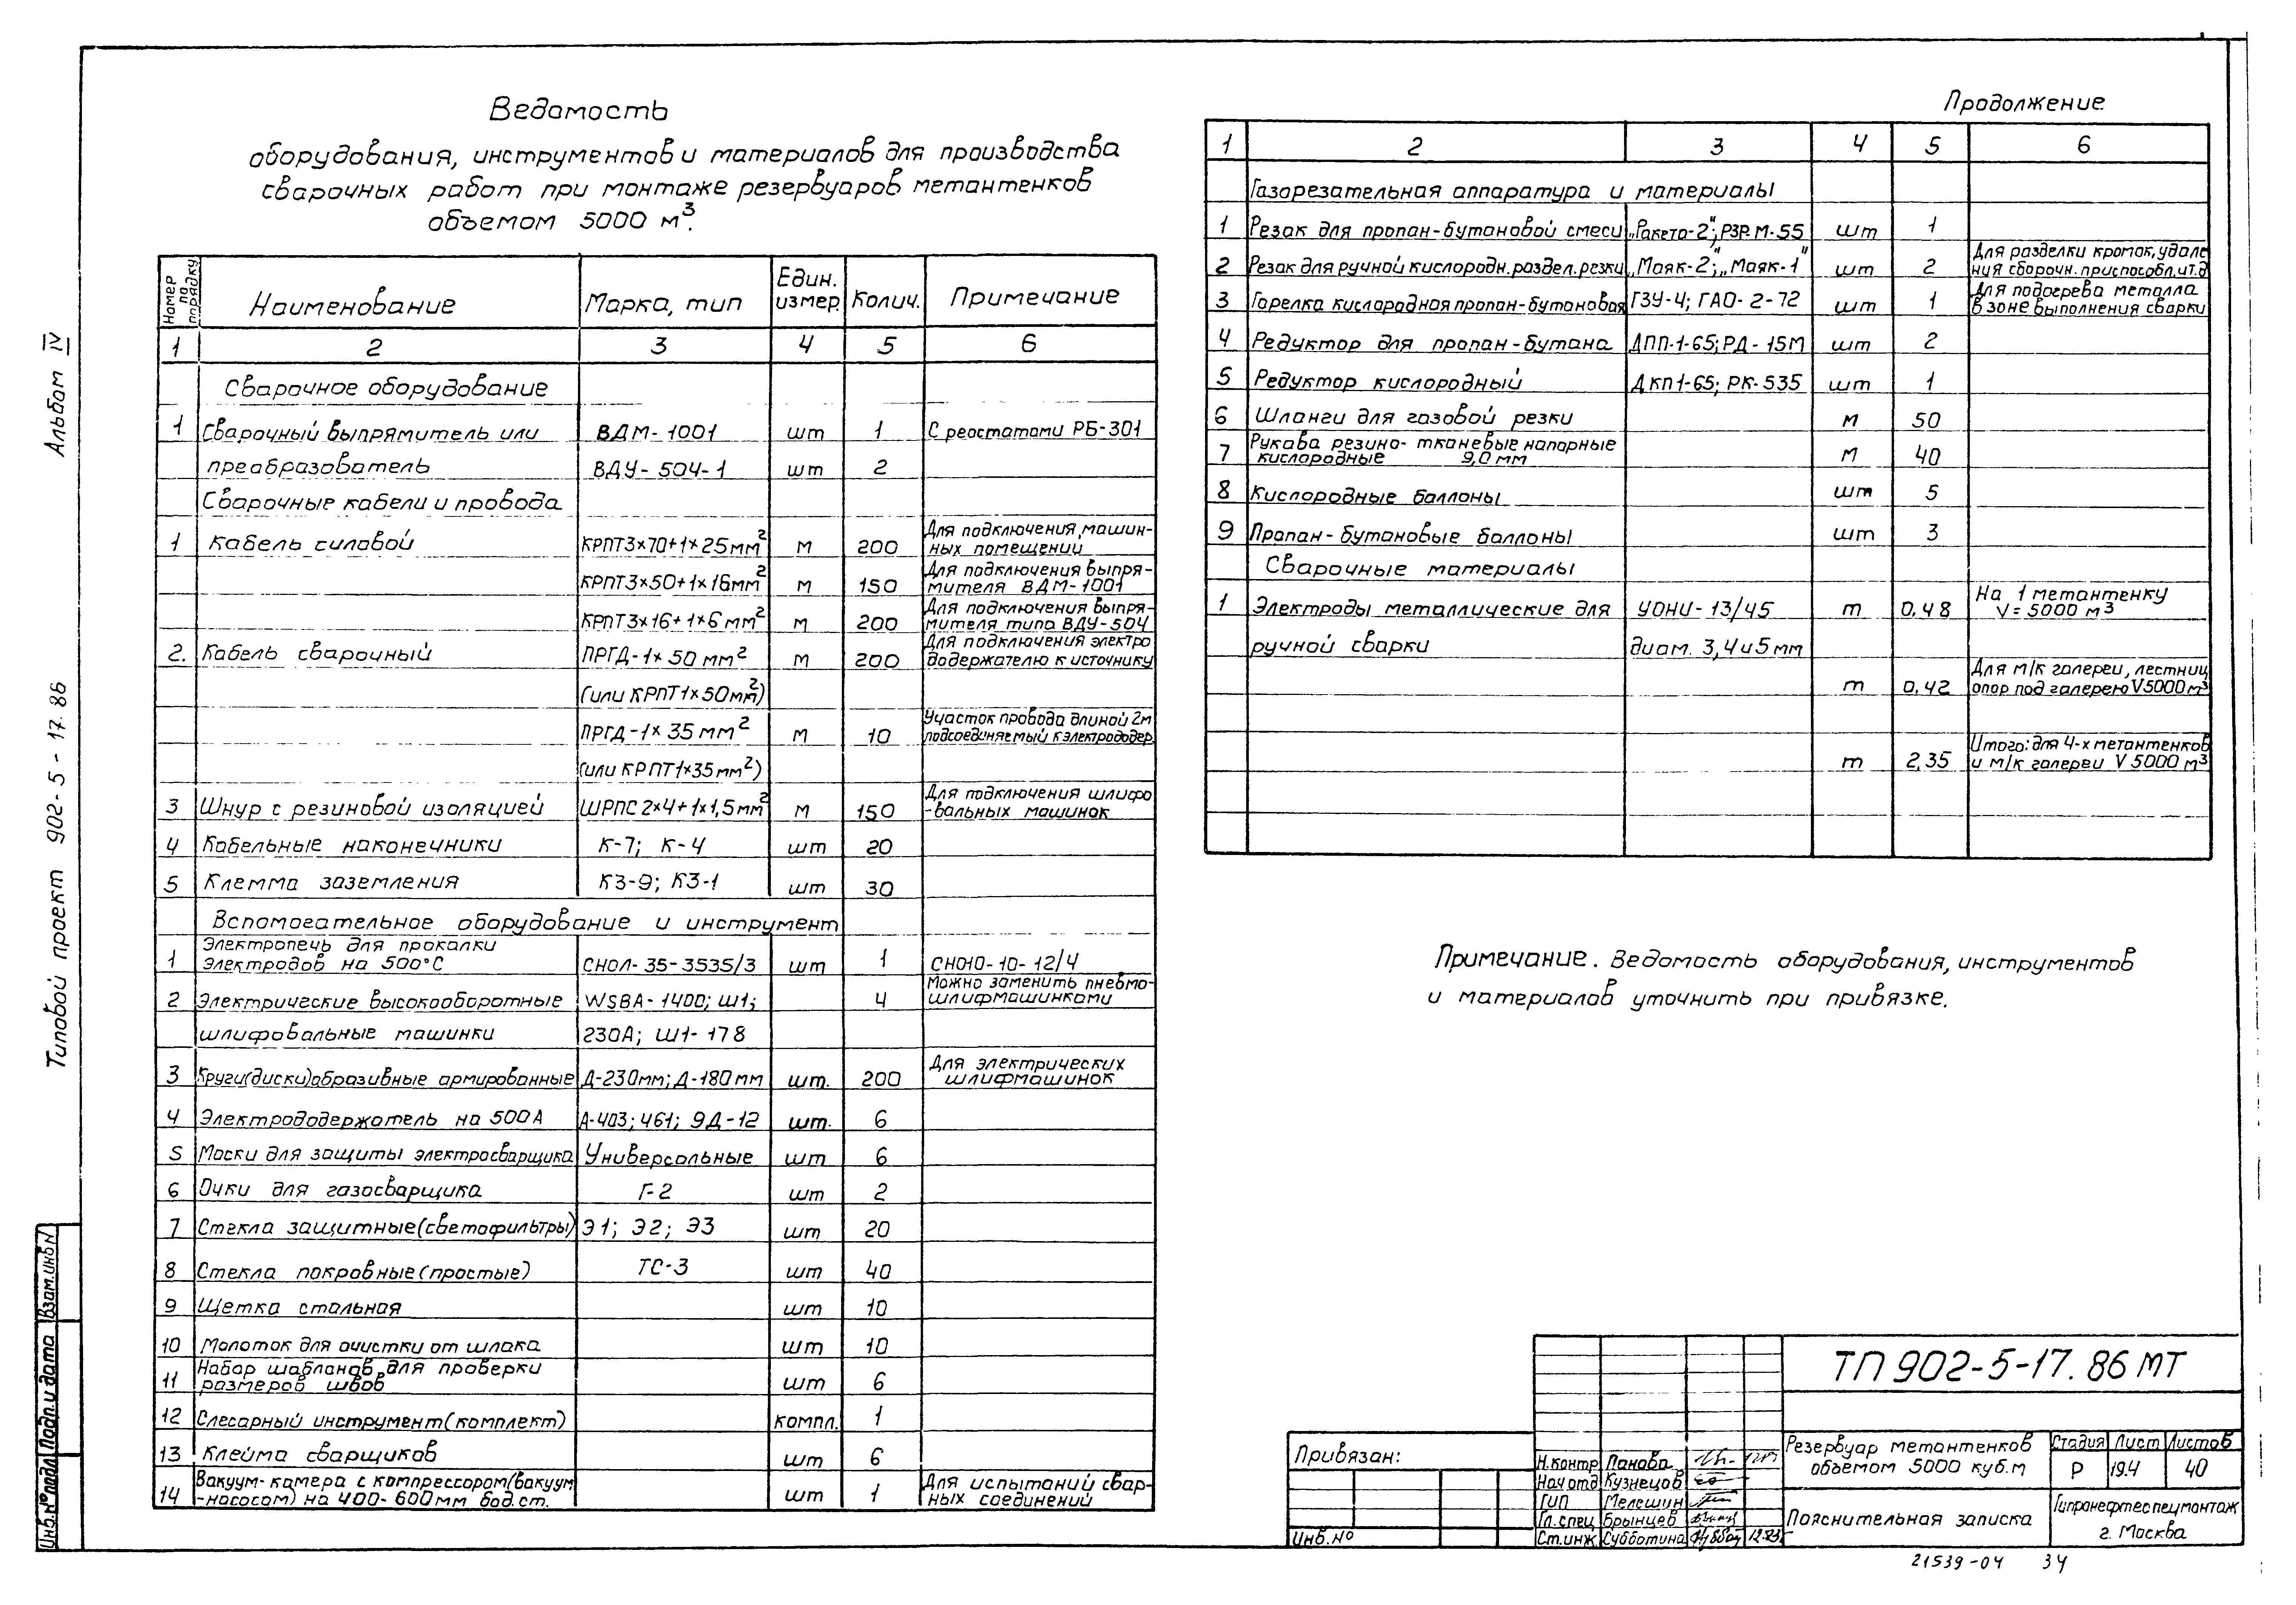 Альбом IV
Типовой проект 902-5-17.86
Взам.инв.N
Подп.и дата
Инв.№подл
Ведомость
оборудования, инструментов и материалов для производства
сварочных работ при монтаже резервуаров метантенков
объемом 5000 м³.
Номер по порядку | Наименование | Марка, тип | Един. измер. | Колич. | Примечание
1 | 2 | 3 | 4 | 5 | 6
Сварочное оборудование
1 | Сварочный выпрямитель или | ВДМ-1001 | шт | 1 | С реостатами РБ-301
преабразователь | ВДУ-504-1 | шт | 2
Сварочные кабели и провода
1 | Кабель силовой | КРПТ3×70+1×25мм² | м | 200 | Для подключения, машин-ных помещении
КРПТ3×50+1×16мм² | м | 150 | Для подключения выпря-мителя ВДМ-1001
КРПТ3×16+1×6мм² | м | 200 | Для подключения выпря-мителя типа ВДУ-504
2. | Кабель сварочный | ПРГД-1×50мм² | м | 200 | Для подключения электро додержателю к источнику
(или КРПТ1×50мм²)
ПРГД-1×35мм² | м | 10 | Участок провода длиной 2м подсоединяемый к электрододер.
(или КРПТ1×35мм²)
3 | Шнур с резиновой изоляцией | ШРПС 2×4+1×1,5мм² | м | 150 | Для подключения шлифо -вальных машинок
4 | Кабельные наконечники | К-7; К-4 | шт | 20
5 | Клемма заземления | КЗ-9; КЗ-1 | шт | 30
Вспомогательное оборудование и инструмент
1 | Электропечь для прокалки электродов на 500°С | СНОЛ-35-3535/3 | шт | 1 | СНО10-10-12/4
2 | Электрические высокооборотные | WSBA-1400; Ш1; | 4 | Можно заменить пневмо-шлифмашинками
шлифовальные машинки | 230А; Ш1-178
3 | Круги(диски)абразивные армированные | Д-230мм; Д-180мм | шт. | 200 | Для электрических шлифмашинок
4 | Электрододержатель на 500А | А-403; 461; 9Д-12 | шт. | 6
5 | Маски для защиты электросварщика | Универсальные | шт | 6
6 | Очки для газосварщика | Г-2 | шт | 2
7 | Стекла защитные(светофильтры) | Э1; Э2; Э3 | шт | 20
8 | Стекла покровные(простые) | ТС-3 | шт | 40
9 | Щетка стальная | шт | 10
10 | Молоток для очистки от шлака | шт | 10
11 | Набор шаблонов для проверки размеров швов | шт | 6
12 | Слесарный инструмент(комплект) | компл. | 1
13 | Клейма сварщиков | шт | 6
14 | Вакуум-камера с компрессором(вакуум -насосом) на 400-600мм вод.ст. | шт | 1 | Для испытаний свар-ных соединений
Продолжение
1 | 2 | 3 | 4 | 5 | 6
Газорезательная аппаратура и материалы
1 | Резак для пропан-бутановой смеси | „Ракета-2"; РЗР. М-55 | шт | 1
2 | Резак для ручной кислородн. раздел. резки | „Маяк-2"; „Маяк-1" | шт | 2 | Для разделки кромок, удале ния сварочн. приспособл. и т.д
3 | Горелка кислородная пропан-бутановая | ГЗУ-4; ГАО-2-72 | шт | 1 | Для подогрева металла в зоне выполнения сварки
4 | Редуктор для пропан-бутана | ДПП-1-65; РД-15М | шт | 2
5 | Редуктор кислородный | ДКП1-65; РК-535 | шт | 1
6 | Шланги для газовой резки | м | 50
7 | Рукава резино-тканевые напорные кислородные 9,0мм | м | 40
8 | Кислородные баллоны | шт | 5
9 | Пропан-бутановые баллоны | шт | 3
Сварочные материалы
1 | Электроды металлические для | УОНИ-13/45 | т | 0,48 | На 1 метантенку V=5000 м³
ручной сварки | диам. 3,4 и 5мм
т | 0,42 | Для м/к галереи, лестниц опор под галерею V5000м³
т | 2,35 | Итого: для 4-х метантенков и м/к галереи V 5000 м³
Примечание. Ведомость оборудования, инструментов
и материалов уточнить при привязке.
Привязан:
Инв.№
Н.контр | Панова
Нач отд | Кузнецов
ГИП | Мелешин
Гл.спец | Брынцев
Ст.инж. | Субботина | 12.85г
ТП 902-5-17.86 МТ
Резервуар метантенков объемом 5000 куб.м
Стадия | Лист | Листов
Р | 19.4 | 40
Пояснительная записка
Гипронефтеспецмонтаж г. Москва
21539-04 34